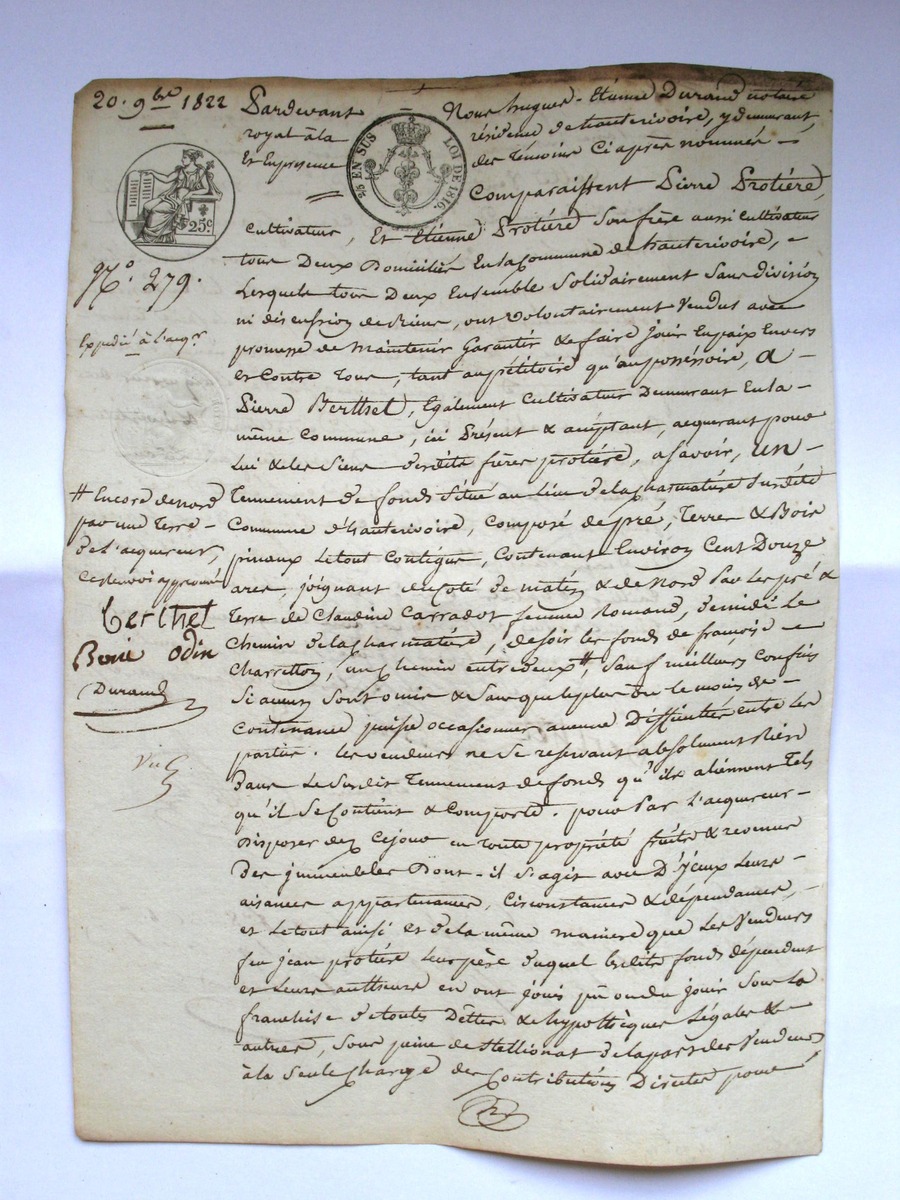 20. 9bre 1822
Pardevant Nous hugues - Etienne Durand notaire
royal à la résidence de hauterivoire, y demeurant,
Et En presence des Témoins Ci après nommés -
2/5 EN SUS LOI DE 1816.
25c
Comparaissent Pierre Protière,
Cultivateur, Et Etienne Protière Son frère aussi Cultivateur
tous Deux Domiciliés En la Commune de hauterivoire, -
Lesquels tous Deux Ensemble Solidairement Sans division
ni discussion de Biens, ont Volontairement Vendus avec
promesse de Maintenir Garantir & faire Jouir En paix Envers
et Contre Tous, tant au pétitoire qu'au possessoire, a -
Pierre Berthet, Egalement Cultivateur Demeurant En la -
même Commune, ici Présent & acceptant, acquerant pour
Lui & les Siens desdits frères protière, a Savoir, un -
Tennement de fonds Situé au Lieu de la pharmatière Susdite
Commune d'hauterivoire, Composé de pré, Terre & Bois
pinaux Le tout Contigue, Contenant Environ Cent Douze
ares, joignant du Coté de matin & de Nord Par Les pré &
Terre de Claudine Carradot femme Romand, de midi Le
Chemin de la pharmatière, de soir les fonds de françois -
Charretton, un Chemin entre deux #, Sauf meilleurs Confins
Si aucuns Sont omis & Sans que le plus ou le moins de -
Contenance puisse occasionner aucune Difficultés entre Les
parties. Les vendeurs ne Se reservant absolument Rien
Dans Le Susdit Tennement de fonds qu'ils aliennent Tels
qu'il Se Contient & Comporte. pour Par L'acquereur -
Disposer dez Cejour en Toute propriété fruits & revenus
Des jmmeubles Dont-il S'agit avec D'jeux Leurs -
aisances appartenances, Circonstances & dépendances, -
et Le tout ainsi et de la même maniere que Les Vendeurs
feu jean protière Leur père duquel Lesdits fonds dépendent
et Leurs autheurs en ont jouis pu ou du jouir Sous La
franchise de toutes Dettes & hypothèques Légales &
autres, Sous peine de Stellionat de la part des Vendeurs
à la Seule Charge des Contributions Directes pour
N.o 279.
Expedié à l'acqr
# Encore de Nord
par une Terre -
de l'acquereur,
ce renvoi approuvé
Berthet
odin
Durand
Vu